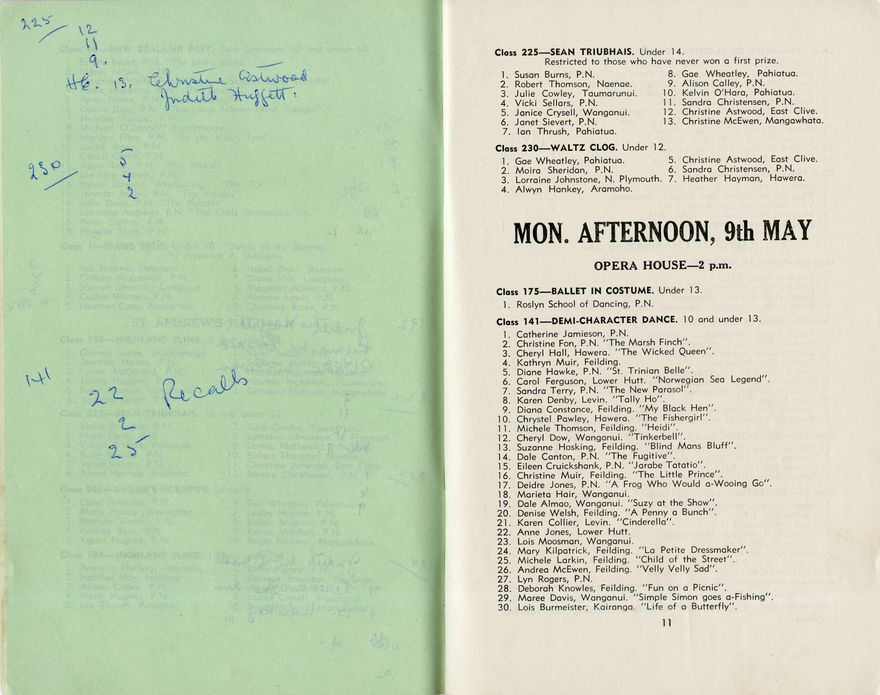 225
12
11
9.
HC. 13. Christine Eastwood
Judith Huffett.
230
5
4
2
141
22 Recalls
2
25
Class 225—SEAN TRIUBHAIS. Under 14.
Restricted to those who have never won a first prize.
1. Susan Burns, P.N.
2. Robert Thomson, Naenae.
3. Julie Cowley, Taumarunui.
4. Vicki Sellars, P.N.
5. Janice Crysell, Wanganui.
6. Janet Sievert, P.N.
7. Ian Thrush, Pahiatua.
8. Gae Wheatley, Pahiatua.
9. Alison Calley, P.N.
10. Kelvin O'Hara, Pahiatua.
11. Sandra Christensen, P.N.
12. Christine Astwood, East Clive.
13. Christine McEwen, Mangawhata.
Class 230—WALTZ CLOG. Under 12.
1. Gae Wheatley, Pahiatua.
2. Moira Sheridan, P.N.
3. Lorraine Johnstone, N. Plymouth.
4. Alwyn Hankey, Aramoho.
5. Christine Astwood, East Clive.
6. Sandra Christensen, P.N.
7. Heather Hayman, Hawera.
MON. AFTERNOON, 9th MAY
OPERA HOUSE—2 p.m.
Class 175—BALLET IN COSTUME. Under 13.
1. Roslyn School of Dancing, P.N.
Class 141—DEMI-CHARACTER DANCE. 10 and under 13.
1. Catherine Jamieson, P.N.
2. Christine Fon, P.N. "The Marsh Finch".
3. Cheryl Hall, Hawera. "The Wicked Queen".
4. Kathryn Muir, Feilding.
5. Diane Hawke, P.N. "St. Trinian Belle".
6. Carol Ferguson, Lower Hutt. "Norwegian Sea Legend".
7. Sandra Terry, P.N. "The New Parasol".
8. Karen Denby, Levin. "Tally Ho".
9. Diana Constance, Feilding. "My Black Hen".
10. Chrystel Pawley, Hawera. "The Fishergirl".
11. Michele Thomson, Feilding. "Heidi".
12. Cheryl Dow, Wanganui. "Tinkerbell".
13. Suzanne Hosking, Feilding. "Blind Mans Bluff".
14. Dale Canton, P.N. "The Fugitive".
15. Eileen Cruickshank, P.N. "Jarabe Tatatio".
16. Christine Muir, Feilding. "The Little Prince".
17. Deidre Jones, P.N. "A Frog Who Would a-Wooing Go".
18. Marieta Hair, Wanganui.
19. Dale Almao, Wanganui. "Suzy at the Show".
20. Denise Welsh, Feilding. "A Penny a Bunch".
21. Karen Collier, Levin. "Cinderella".
22. Anne Jones, Lower Hutt.
23. Lois Moosman, Wanganui.
24. Mary Kilpatrick, Feilding. "La Petite Dressmaker".
25. Michele Larkin, Feilding. "Child of the Street".
26. Andrea McEwen, Feilding. "Velly Velly Sad".
27. Lyn Rogers, P.N.
28. Deborah Knowles, Feilding. "Fun on a Picnic".
29. Maree Davis, Wanganui. "Simple Simon goes a-Fishing".
30. Lois Burmeister, Kairanga. "Life of a Butterfly".
11